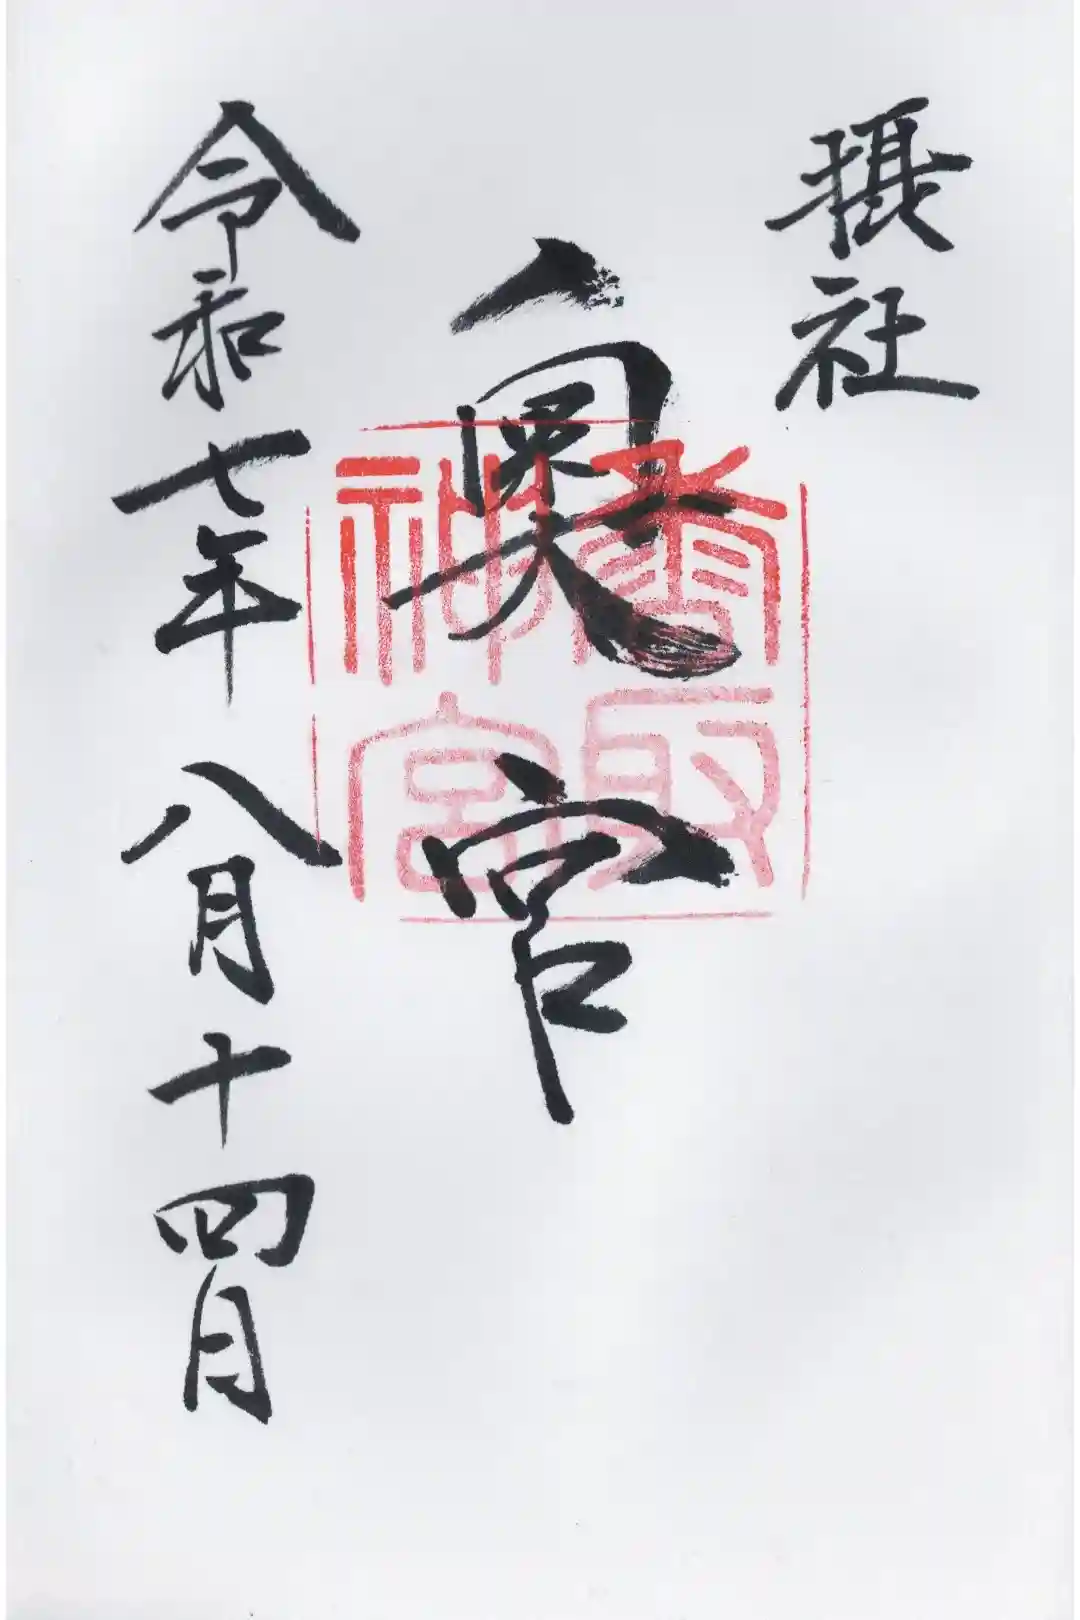 摂社
奥宮
香取神宮
令和七年八月十四日